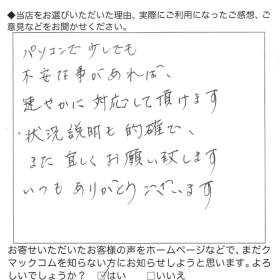 ◆当店をお選びいただいた理由、実際にご利用になったご感想、ご
意見などをお聞かせください。
パソコンで少しでも
不安な事があれば、
速やかに対応して頂けます
・状況説明も的確で、
また宜しくお願い致します
いつもありがとうございます
お寄せいただいたお客様の声をホームページなどで、まだク
マックコムを知らない方にお知らせしようと思います。よろ
しいでしょうか? ☑はい □いいえ